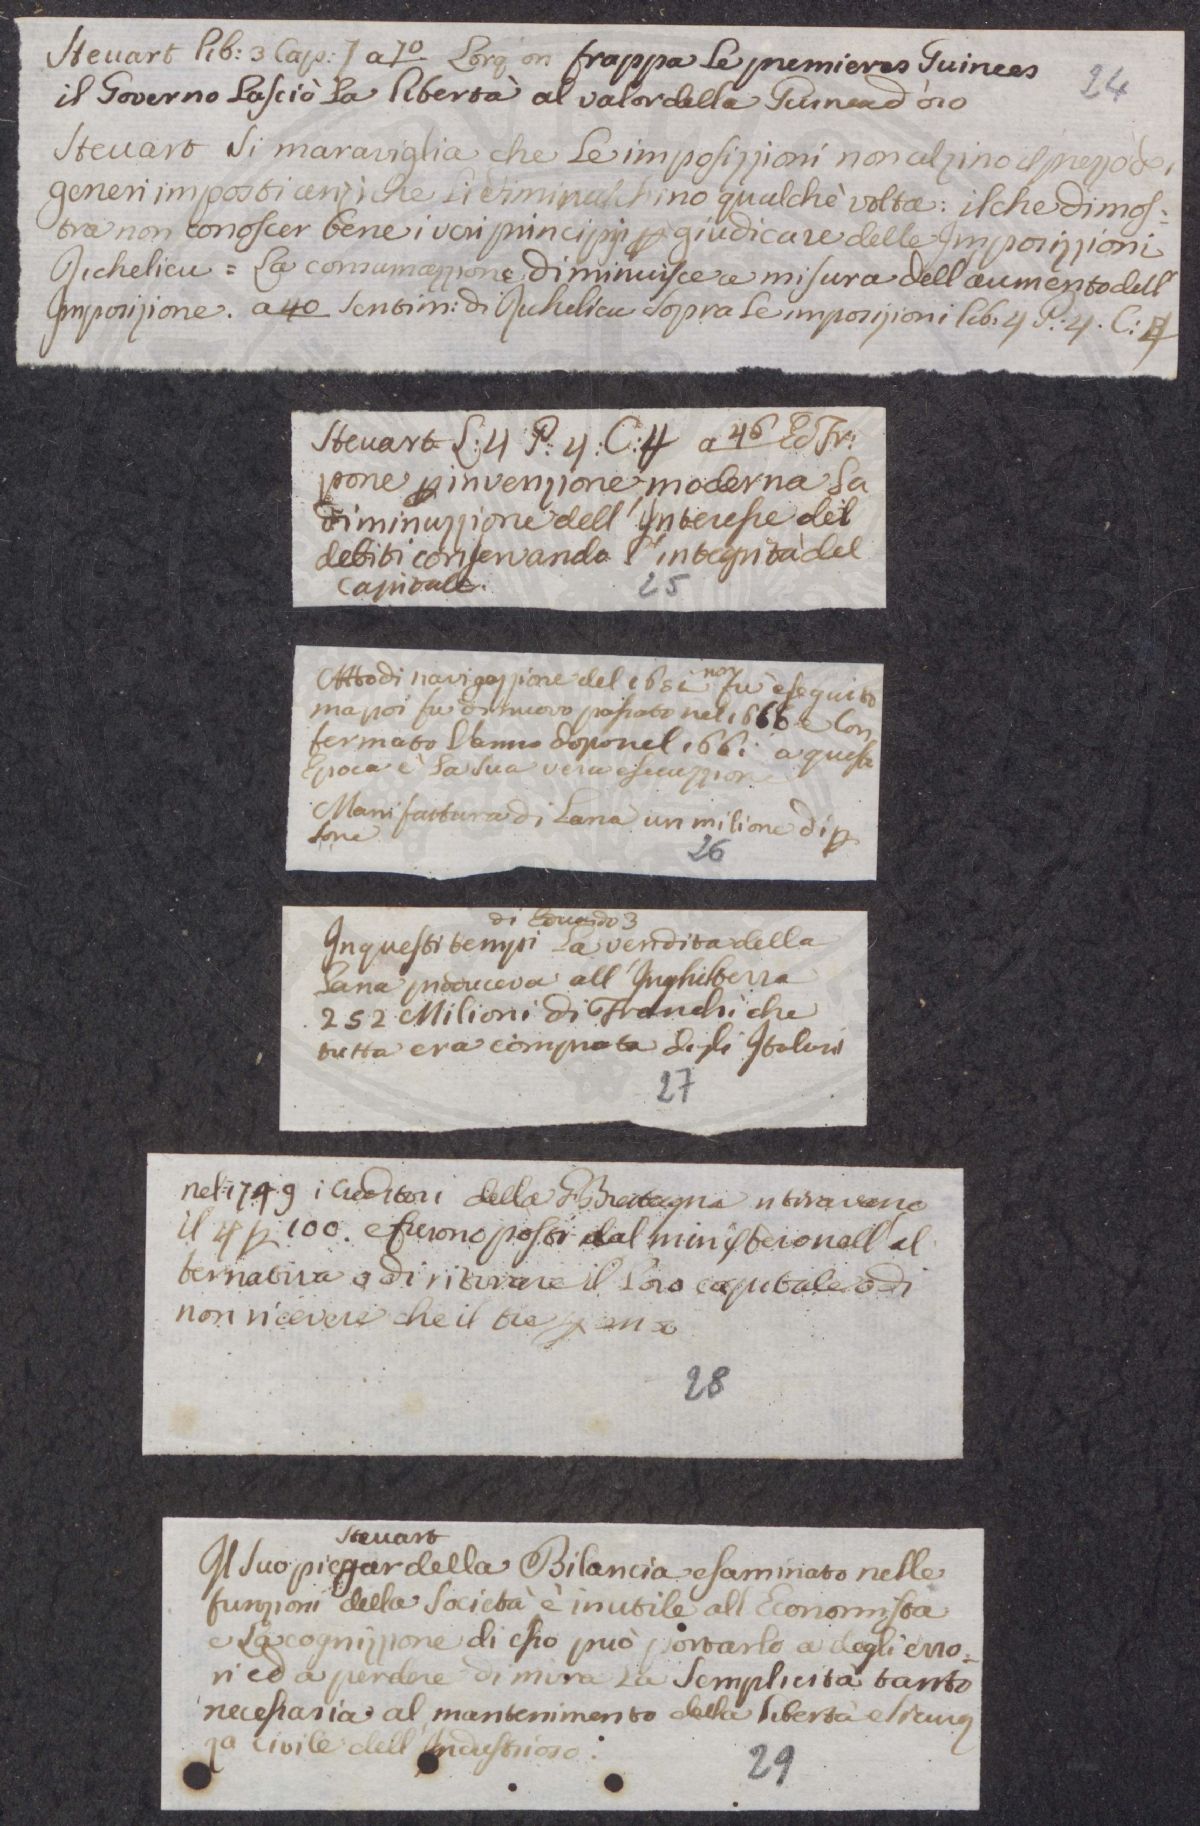 Steuart lib: 3 Cap: 7 a 70 Lorq'on frappa le premieres Guinees
24
il Governo lasciò la libertà al valor della Guinea d'oro
Steuart si maraviglia che le imposizzioni non alzino il prezzo de
generi imposti anzi che li diminuischino qualche volta: il che dimos-
tra non conoscer bene i veri principj p giudicare delle Imposizzioni
Richelieu = La consumazzione diminuisce a misura dell aumento dell
Imposizione. a 40 Sentim: di Richelieu sopra le imposizioni lib: 4 P: 4. C:
Steuart L: 4 P: 4: C: 4 a 46 Ed Fr:
pone p invenzione moderna la
diminuzzione dell'Interesse dei
debiti conservando l'integrità del
capitale.
25
Atto di navigazzione del 1651 non fu eseguito
ma poi fu di nuovo passato nel 1660 e con
fermato l'anno dopo nel 1661 a questa
Epoca è la sua vera esecuzzion
Manifattura di Lana un milione di p
sone
26
di Eduardo 3
In questi tempi la vendita della
Lana produceva all'Inghilterra
252 Milioni di Franchi che
tutta era comprata degli Italiani
27
nel 1749 i Creditori della G Bretagna ritiravano
il 4 p 100. e furono posti dal ministero nell al
ternativa o di ritirare il loro capitale o di
non ricevere che il tre p
28
Steuart
Il suo piegar della Bilancia esaminato nelle
funzioni della Società è inutile all Economista
e la cognizzione di esso può portarlo a degli erro-
ri ed a perdere di mira la semplicità tanto
necessaria al mantenimento della libertà e sicurez
za civile dell'Industrioso:
29